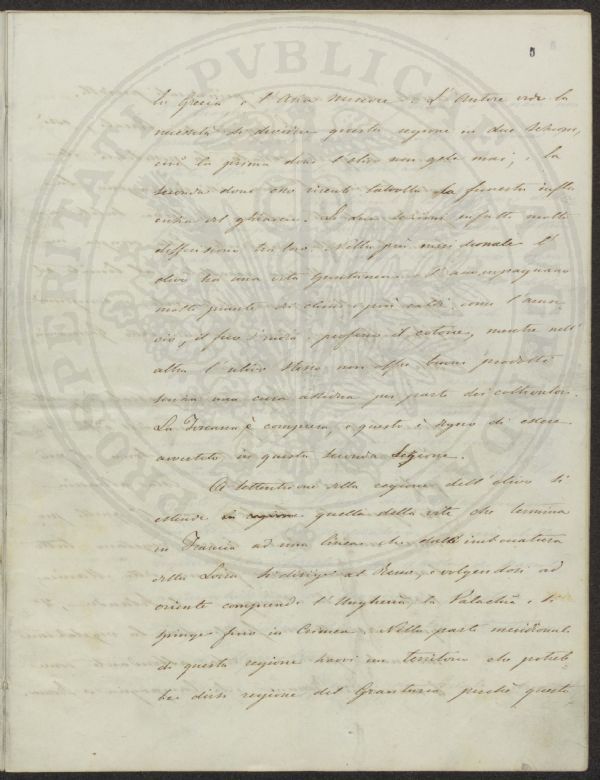 5
la Grecia e l'Asia minore. L'Autore vede la
necessità di dividere questa regione in due sezioni,
cioè la prima dove l'olivo non gela mai, e la
seconda dove esso risente talvolta la funesta influ
enza del ghiaccio. Le due sezioni infatti molto
differiscono tra loro. Nella più meridionale l'
olivo ha una vita spontanea e l'accompagnano
molte piante dei climi più caldi come l'aran-
cio, il fico d'india e perfino il cotone, mentre nell'
altra l'ulivo stesso non offre buoni prodotti
senza una cura assidua per parte dei coltivatori.
La Toscana è compresa, e questo è degno di essere
avvertito, in questa seconda Sezione.
A settentrione della regione dell'olivo si
estende la regione quella della vite che termina
in Francia ad una linea che dall'imboccatura
della Loira si dirige al Reno, e volgendosi ad
oriente comprende l'Ungheria, la Valachia e si
spinge fino in Crimea. Nella parte meridionale
di questa regione havvi un territorio che potreb
be dirsi regione del Granturco, perchè questo
PROSPERITATI PVBLICAE AVGENDAE